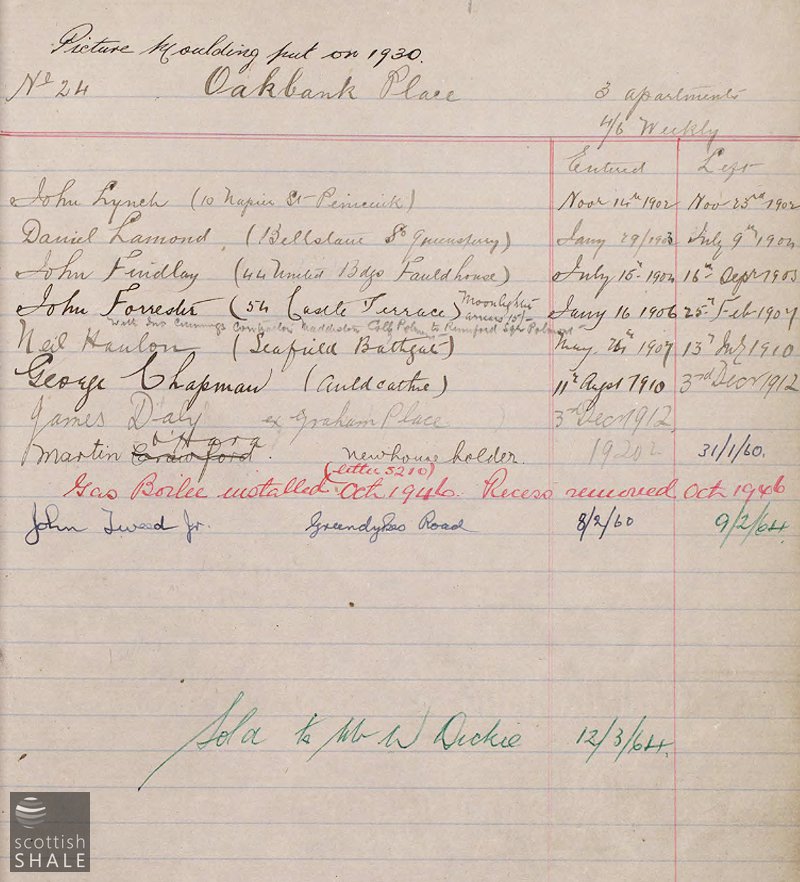 Picture Moulding put on 1930.
No 24 Oakbank Place 3 apartments
4/6 Weekly
Entered Left
John Lynch (10 Napier St Penicuik) Novr 14th 1902 Nov 23rd 1902
Daniel Lamond, (Bellstane So Queensferry) Jany 29/1903 July 9th 1904
John Findlay (44 United Bdgs Fauldhouse) July 15th 1904 16th Sepr 1905
John Forrester (54 Castle Terrace) Moonlighter arrears 15/- Jany 16 1906 25th Feb 1907
With Jno Cummings Contractor Maddiston to Rumford Sqr Polmont
Neil Hanlon (Seafield Bathgate) May 1907 13th July 1910
George Chapman (Auldcathie) 11th Augst 1910 3rd Decr 1912
James Daly ex Graham Place 3rd Decr 1912
O'Hara
Martin Crawford. new householder. 1920? 31/1/60.
(letter 5210)
Gas Boiler installed Oct 1946. Recess removed Oct 1946
John Tweed Jr. Greendykes Road 8/2/60 9/2/64.
Sold to Mr W Dickie 12/3/64.
scottish
SHALE